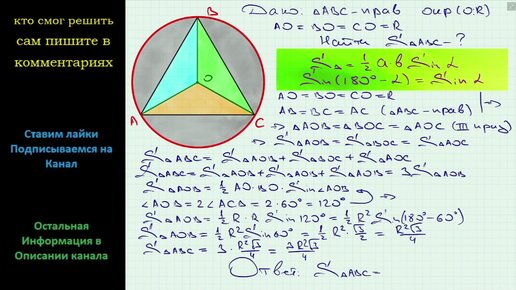 кто смог решить
сам пишите в
комментариях
Ставим лайки
Подписываемся на
Канал
Остальная
Информация в
Описании канала
B
O
A
C
Дано: ΔABC-прав окр(O;R)
AO=BO=CO=R
Найти SΔABC-?
SΔ=1/2 a b Sin α
Sin(180°-α)=Sin α
AO=BO=CO=R
AB=BC=AC (ΔABC-прав)
→ ΔAOB=ΔBOC=ΔAOC (III приз)
→ SΔAOB=SΔBOC=SΔAOC
SΔABC=SΔAOB+SΔBOC+SΔAOC
SΔABC=SΔAOB+SΔAOB+SΔAOB=3SΔAOB
SΔAOB=1/2 AO·BO·Sin∠AOB
∠AOB=2∠ACB=2·60°=120°
SΔAOB=1/2 R·R Sin120°=1/2 R² Sin(180°-60°)
SΔAOB=1/2 R² Sin60°=1/2 R²·√3/2=R²√3/4
SΔABC=3·R²√3/4=3R²√3/4
Ответ: SΔABC=